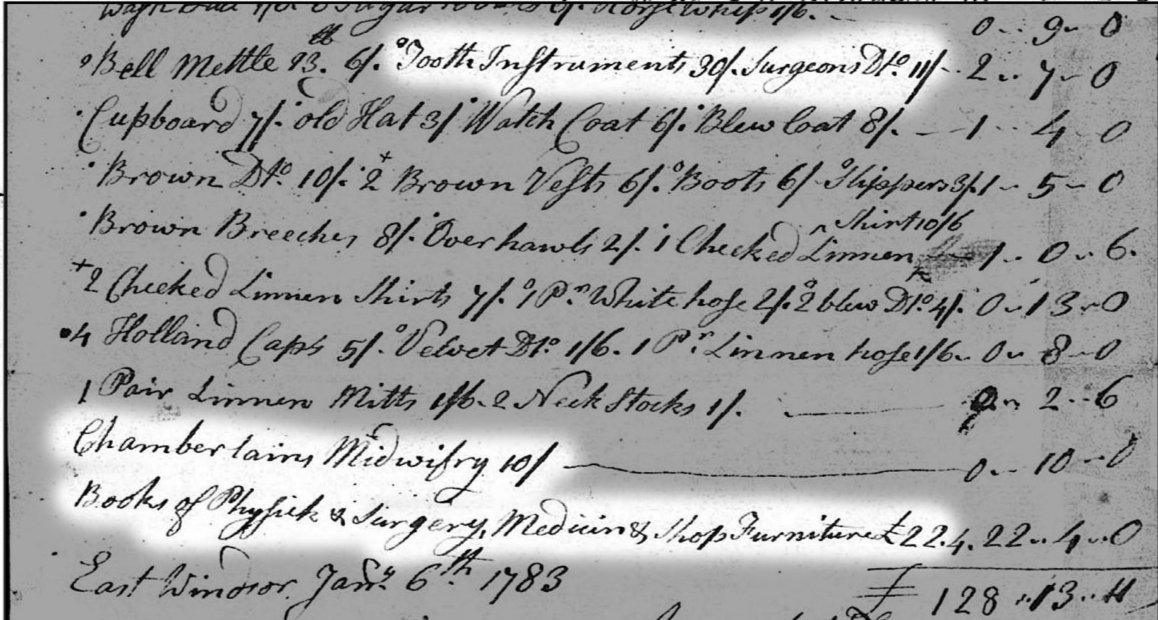 Sugar 6/. Whip 1/6. - 0 .. 9 .. 0
Bell Mettle 23.lb 6/. Tooth Instruments 30/. Surgeons Dto. 11/ - 2 .. 7 - 0
Cupboard 7/. old Hat 3/ Watch Coat 6/. Blew Coat 8/. - 1 .. 4 - 0
Brown Dto. 10/. 2 Brown Vests 6/. Boots 6/. Slippers 3/. 1 - 5 - 0
Shirt 10/6
Brown Breeches 8/. Overhawls 2/. 1 Checked ^ Linnen - 1 .. 0 .. 6.
+2 Checked Linnen Shirts 7/. 1 Pr. White hose 2/. 2 blew Dto. 4/. 0 .. 13 .. 0
4 Holland Caps 5/. Velvet Dto. 1/6. 1 Pr. Linnen hose 1/6. 0 .. 8 - 0
1 Pair Linnen Mitts 1/6. 2 Neck Stocks 1/. - 0 .. 2 .. 6
Chamberlains Midwifry 10/ - 0 .. 10 .. 0
Books of Physick & Surgery, Medicin & Shop Furniture £22.4. 22 .. 4 .. 0
East Windsor Janry. 6th 1783 £ 128 .. 13 .. 11